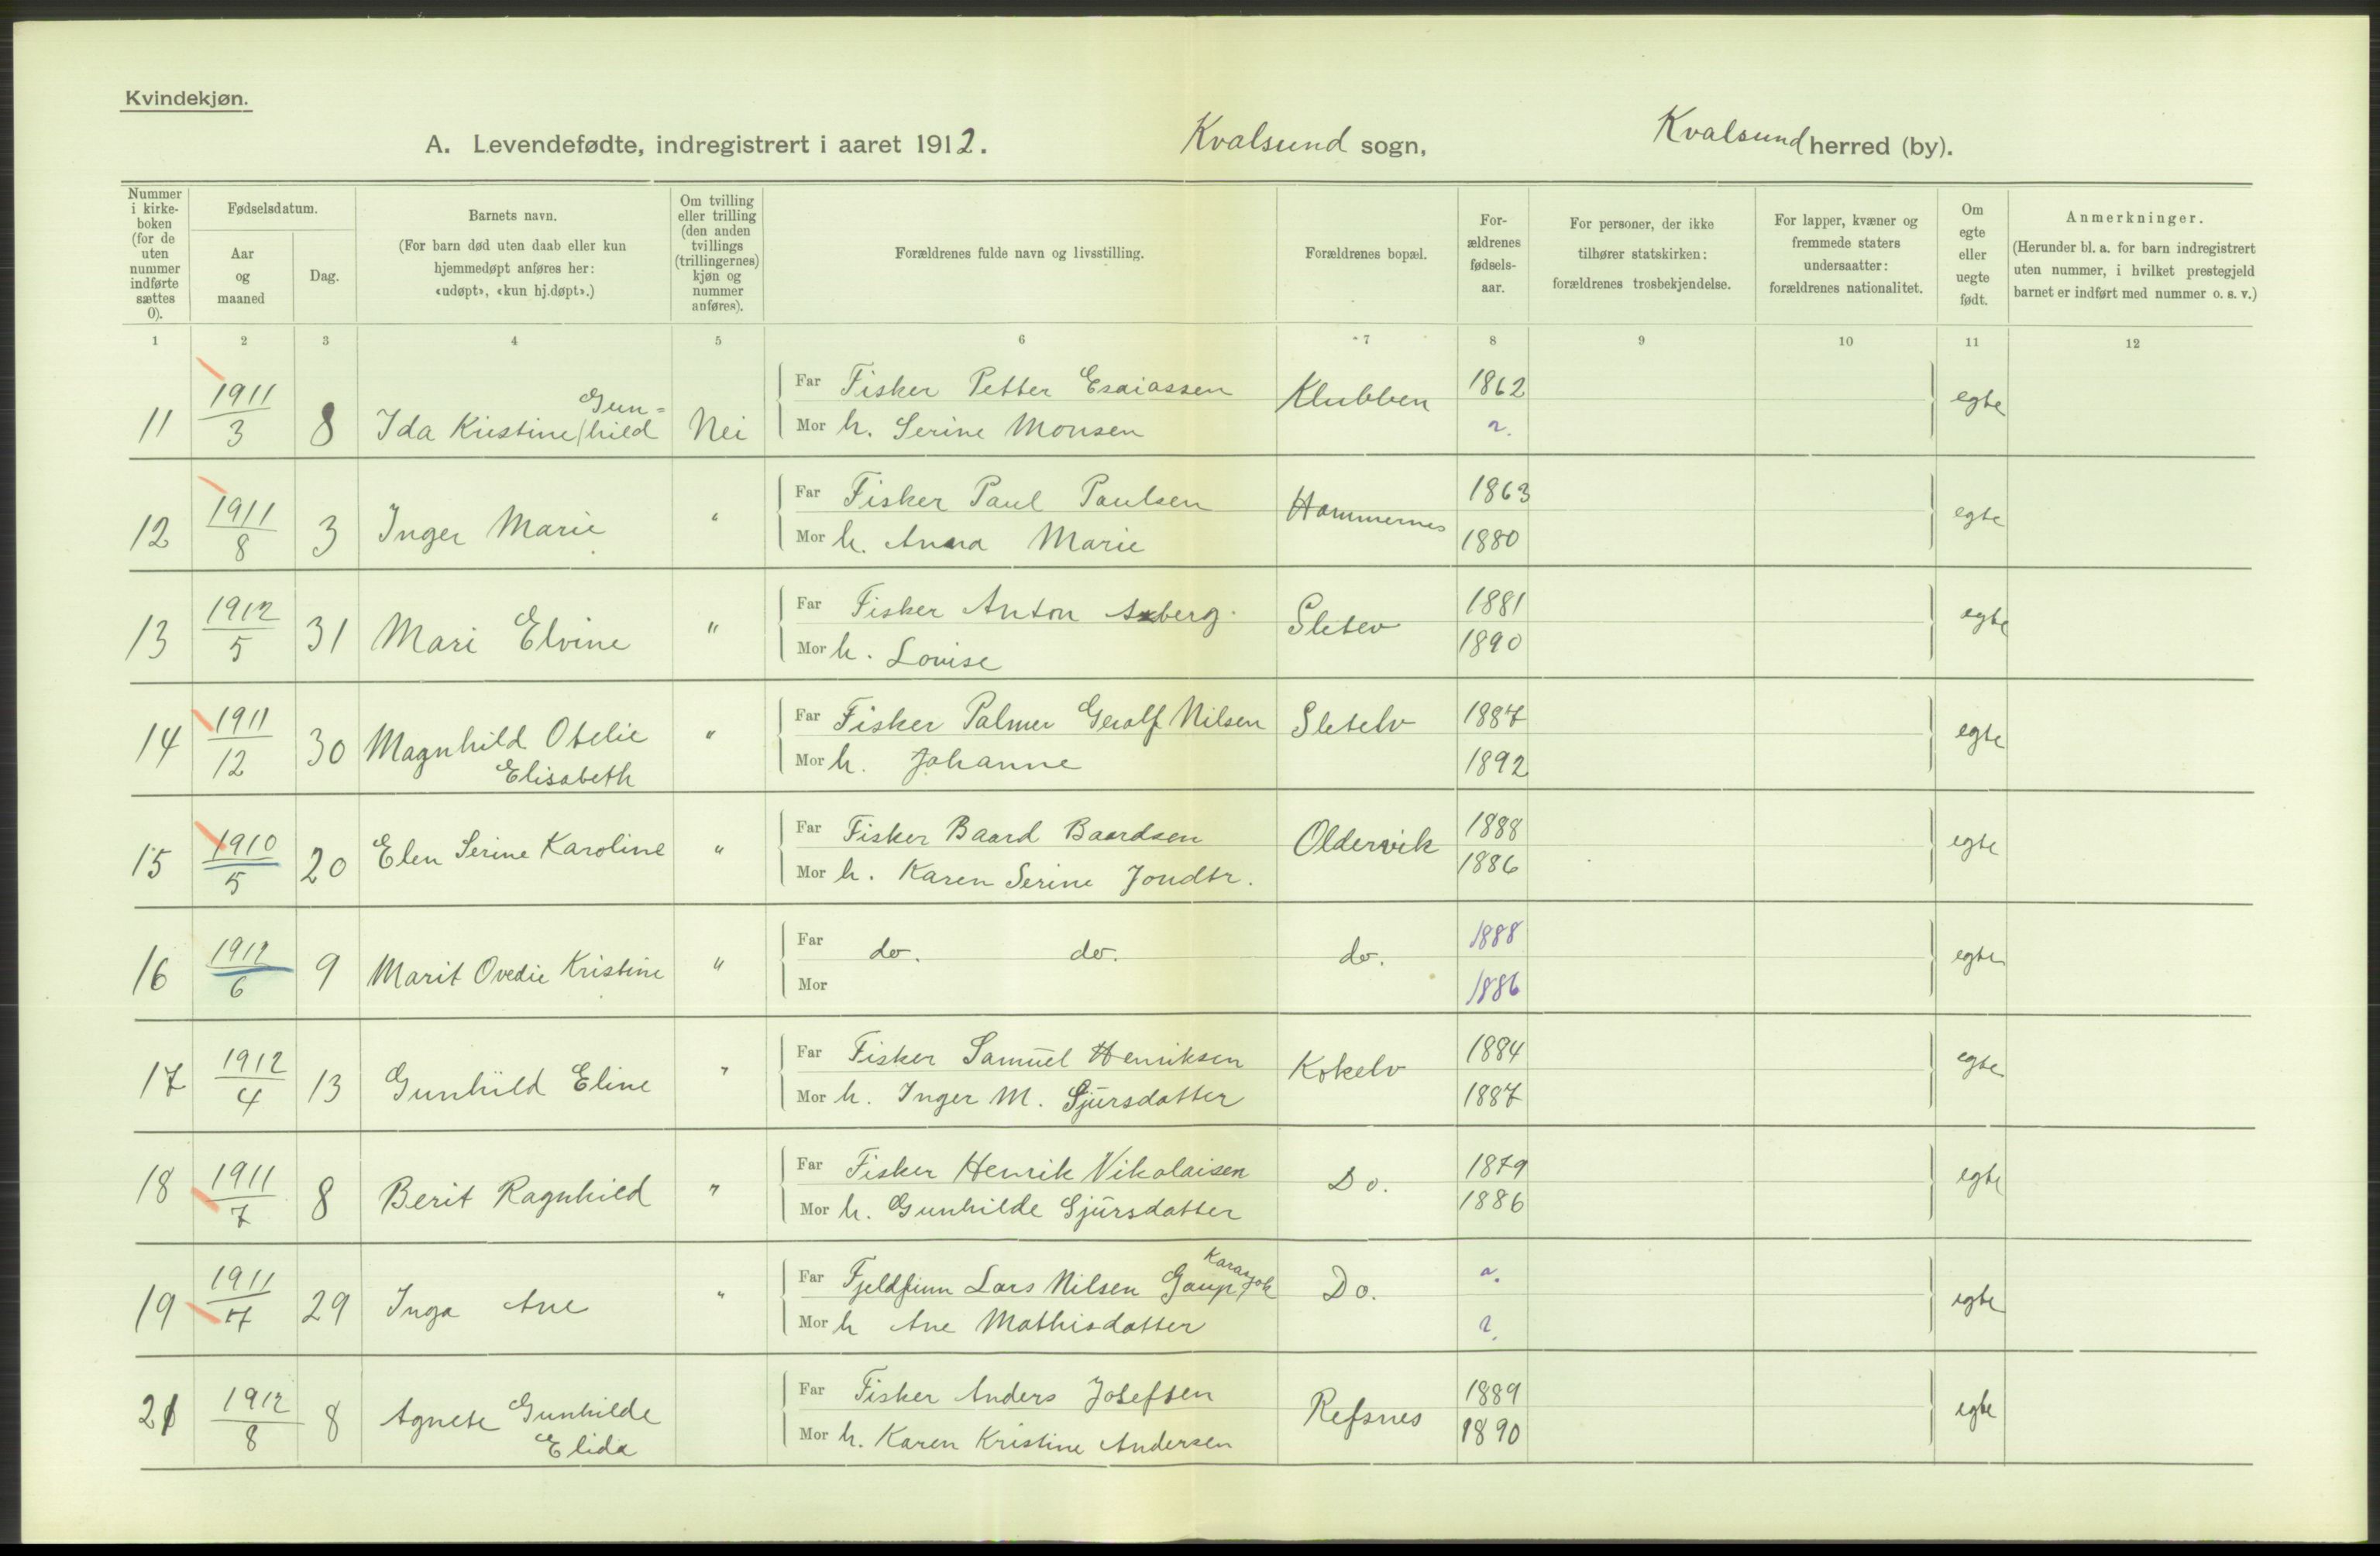 Kvindekjøn.
A. Levendefødte, indregistrert i aaret 1912. Kvalsund sogn, Kvalsund herred (by).
Nummer i kirke- boken (for de uten nummer indførte sættes 0).
Fødselsdatum.
Aar og maaned
Dag.
Barnets navn.
(For barn død uten daab eller kun hjemmedøpt anføres her: «udøpt», «kun hj.døpt».)
Om tvilling eller trilling (den anden tvillings (trillingernes) kjøn og nummer anføres).
Forældrenes fulde navn og livsstilling.
Forældrenes bopæl.
For- ældrenes fødsels- aar.
For personer, der ikke tilhører statskirken: forældrenes trosbekjendelse.
For lapper, kvæner og fremmede staters undersaatter: forældrenes nationalitet.
Om egte eller uegte født.
Anmerkninger.
(Herunder bl. a. for barn indregistrert uten nummer, i hvilket prestegjeld barnet er indført med nummer o. s. v.)
1 2 3 4 5 6 7 8 9 10 11 12
11 1911/3 8 Ida Kristine Gun=hild Nei Far Fisker Petter Esaiassen Klubben 1862 egte
Mor h. Serine Monsen ?.
12 1911/8 3 Inger Marie " Far Fisker Paul Paulsen Hammernes 1863 egte
Mor h. Anna Marie 1880
13 1912/5 31 Mari Elvine " Far Fisker Anton 1881 egte
Mor h. Lovise 1890
14 1911/12 30 Magnhild Otelie Elisabeth " Far Fisker Palmer Gerolf Nilsen Sletelv 1887 egte
Mor h. Johanne 1892
15 1910/5 20 Elen Serine Karoline " Far Fisker Baard Baardsen Oldervik 1888 egte
Mor h. Karen Serine Jondtr. 1886
16 1912/6 9 Marit Ovedie Kristine " Far do. do. do. 1888 egte
Mor 1886
17 1912/4 13 Gunhild Eline " Far Fisker Samuel Henriksen Kokelv 1884 egte
Mor h. Inger M. Sjursdatter 1887
18 1911/7 8 Berit Ragnhild " Far Fisker Henrik Nikolaisen Do. 1879 egte
Mor h. Gunhilde Sjursdatter 1886
19 1911/7 29 Inga Ane " Far Fjeldfinn Lars Nilsen Gaup, Karasjok Do. ?. egte
Mor h Ane Mathisdatter ?.
21 1912/8 8 Agnete Gunhilde Elida Far Fisker Anders Josefsen Refsnes 1889 egte
Mor h. Karen Kristine Andersen 1890